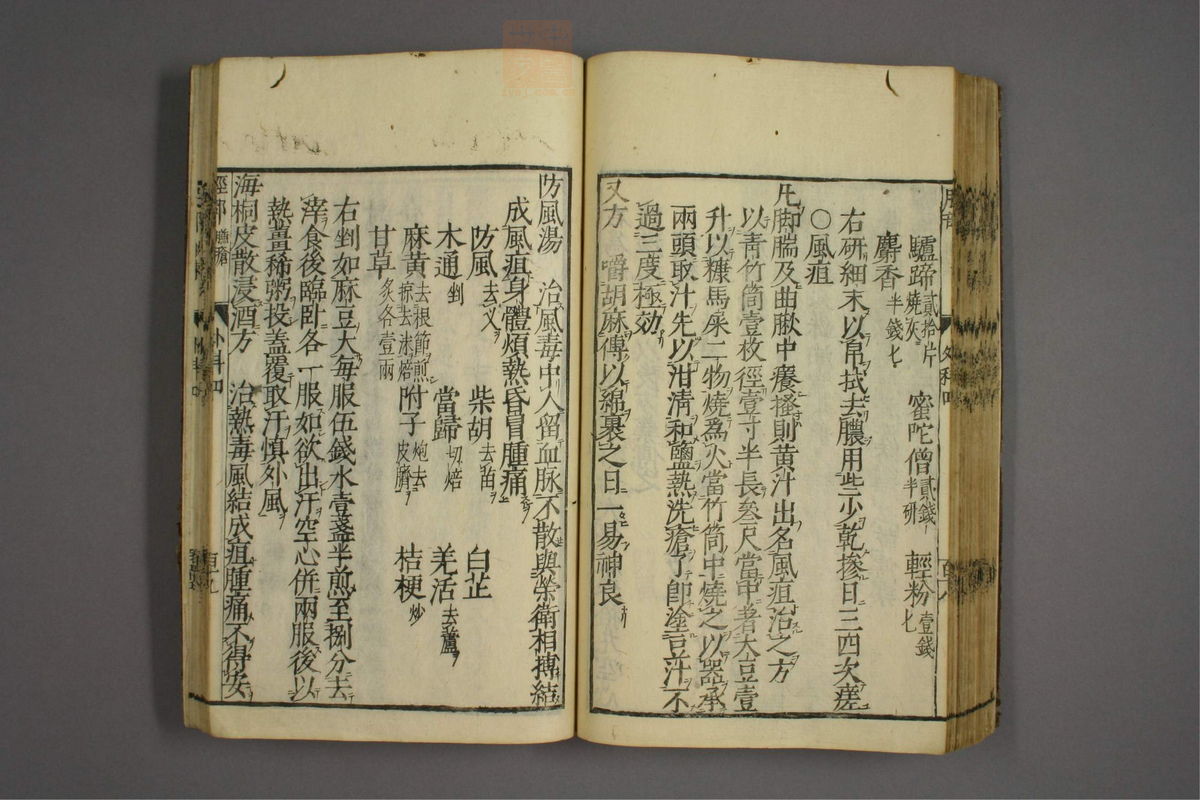 驢蹄貳拾片燒灰 蜜陀僧貳錢半研 輕粉壹錢匕
麝香半錢匕
右研細末以帛拭去膿用些少乾摻日三四次瘥
○風疽
凡脚腨及曲脉中癢搔則黄汁出名風疽治之方
以青竹筒壹枚徑壹寸半長叁尺當中著大豆壹
升以糠馬屎二物燒爲火當竹筒中燒之以器承
兩頭取汁先以泔清和鹽熱洗瘡了即塗豆汁不
過三度極効
又方 嚼胡麻傅以綿裹之日一易神良
防風湯 治風毒中人留血脉不散與榮衛相搏結
成風疽身體煩熱昏冒腫痛
防風去叉 柴胡去苗 白芷
木通剉 當歸切焙 羌活去蘆
麻黄去根節煎掠去沫焙 附子炮去皮臍 桔梗炒
甘草炙各壹兩
右剉如麻豆大每服伍錢水壹盞半煎至捌分去
滓食後臨卧各一服如欲出汗空心併兩服後以
熱薑稀粥投盖覆取汗慎外風
海桐皮散浸酒方 治熱毒風結成疽腫痛不得安
外科四